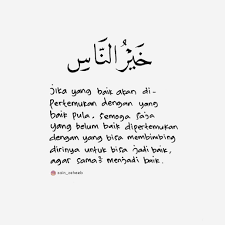 خَيْرُ النَّاسِ
jika yang baik akan di-
pertemukan dengan yang
baik pula. semoga saja
yang belum baik dipertemukan
dengan yang bisa membimbing
dirinya untuk bisa jadi baik,
agar sama2 menjadi baik.